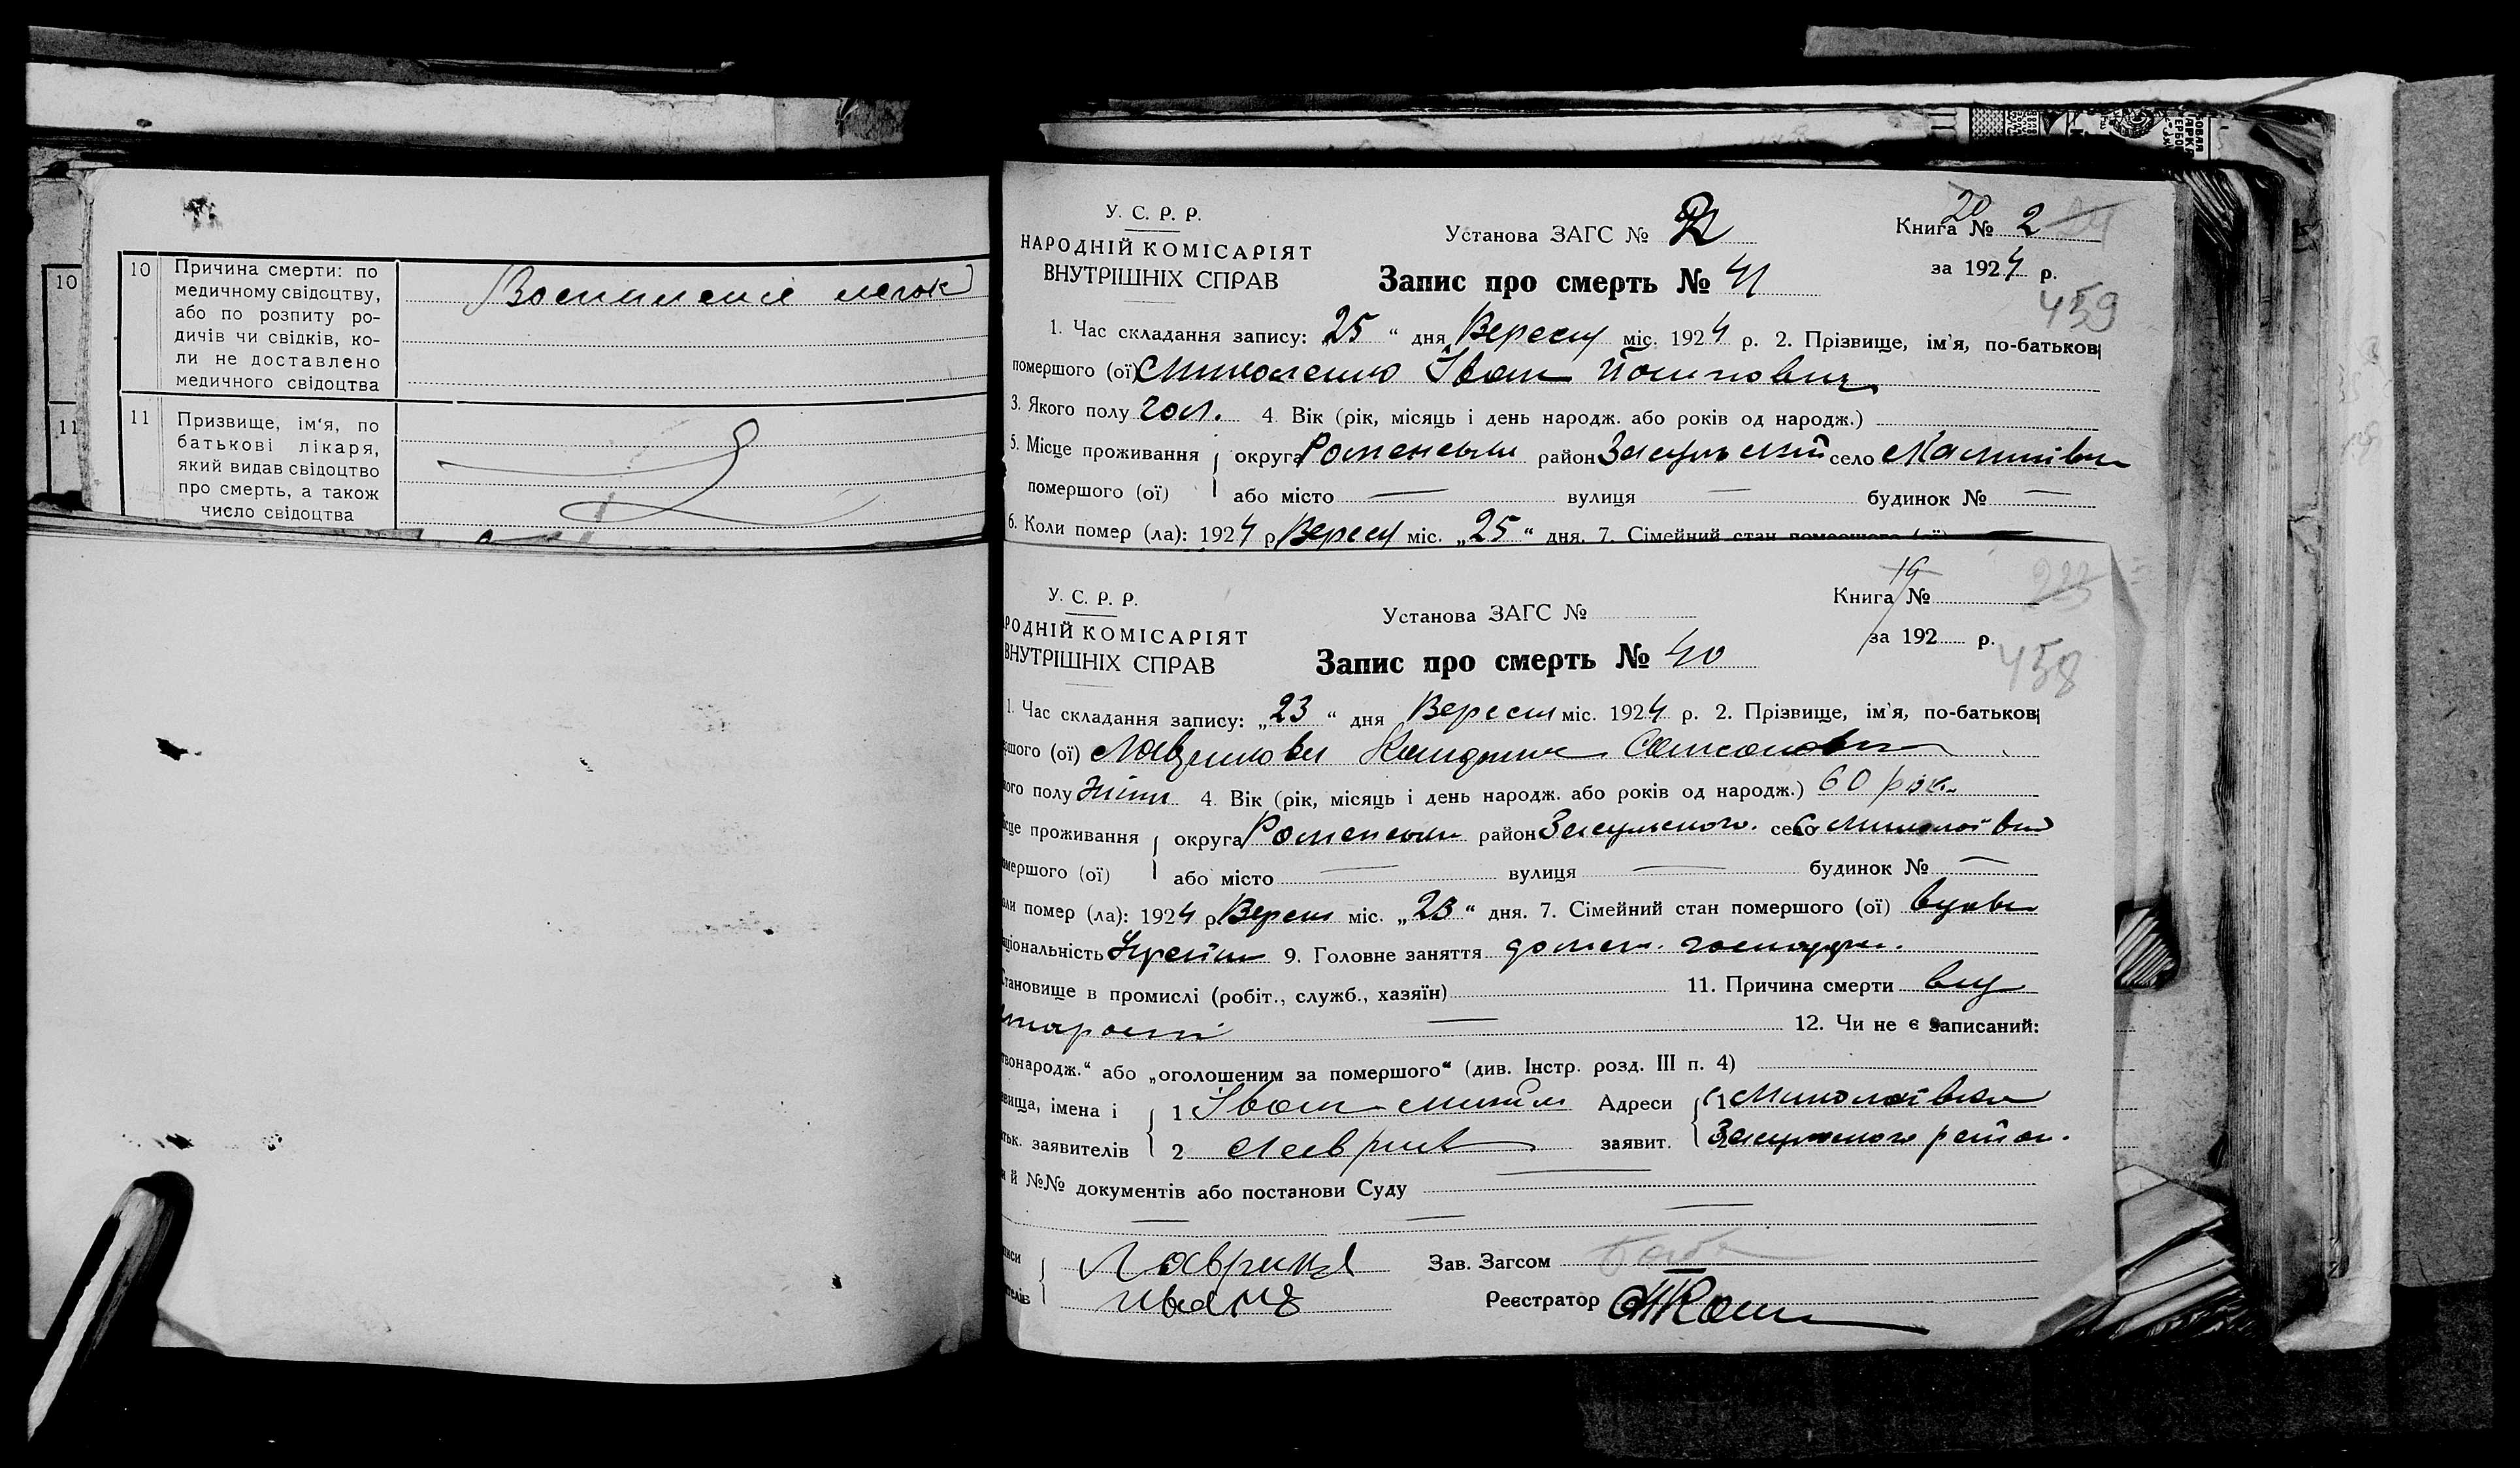 10 Причина смерти: по
медичному свідоцтву,
або по розпиту ро-
дичів чи свідків, ко-
ли не доставлено
медичного свідоцтва
Воспаление легок
11 Призвище, ім‘я, по
батькові лікаря,
який видав свідоцтво
про смерть, а також
число свідоцтва
10
11
У. С. Р. Р.
НАРОДНІЙ КОМІСАРІЯТ
ВНУТРІШНІХ СПРАВ
Установа ЗАГС №
20
Книга № 2
за 1924 р.
Запис про смерть № 41
459
1. Час складання запису: „25“ дня Вересня міс. 1924 р. 2. Прізвище, ім'я, по-батькові
помершого (ої) Миколенко Іван Йосипович
3. Якого полу чол. 4. Вік (рік, місяць і день народж. або років од народж.)
5. Місце проживання округа Роменськи район Засульський село
помершого (ої) або місто — вулиця — будинок № —
6. Коли помер (ла): 1924 р Вересн міс. „25“ дня. 7. Сімейний стан помершого (ої)
У. С. Р. Р.
РОДНІЙ КОМІСАРІЯТ
ВНУТРІШНІХ СПРАВ
Установа ЗАГС №
19
Книга №
за 192 р.
Запис про смерть № 40
458
1. Час складання запису: „23“ дня Вересня міс. 1924 р. 2. Прізвище, ім'я, по-батькові
ршого (ої) Самсоновна
ого полу жіни 4. Вік (рік, місяць і день народж. або років од народж.) 60 рок.
сце проживання округа Роменськи район Засульского. село Миколаівка
омершого (ої) або місто — вулиця — будинок № —
ли помер (ла): 1924 р Вересн міс. „23“ дня. 7. Сімейний стан помершого (ої) вдова
ціональність 9. Головне заняття домаш. господар.
Становище в промислі (робіт., служб., хазяїн) 11. Причина смерти від
старости — 12. Чи не є записаний:
твонародж.“ або „оголошеним за помершого“ (див. Інстр. розд. III п. 4)
звища, імена і 1 Іван Адреси 1 Миколаівка
тьк. заявителів 2 Лаврик заявит. 2 Засульского район.
и й №№ документів або постанови Суду
писи Зав. Загсом
ителів Реєстратор